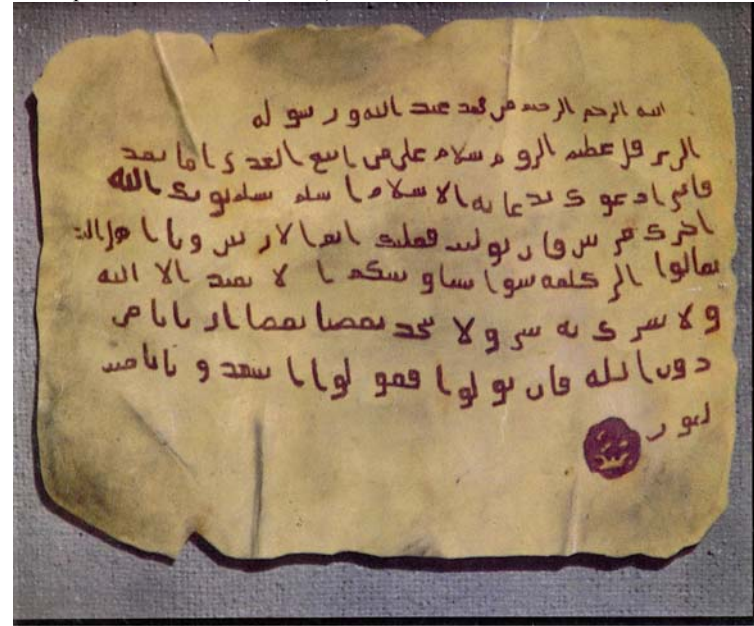 الله الرحمن الرحيم من محمد عبد الله و رسو له
الى هرقل عظيم الروم سلام على من اتبع الهدى اما بعد
فانى ادعو ك بدعاية الا سلام ا سلم تسلم يوتك الله
اجرك مرتين فان توليت فعليك اثم الاريسين ويا اهل
تعالوا الى كلمة سوا بيننا وبينكم ا لا نعبد الا الله
ولا نشرك به شى ولا يتخد بعضنا بعضا اربابا من
دون الله فان تو لوا فقو لوا ا شهدو بانا مس
لمو ن